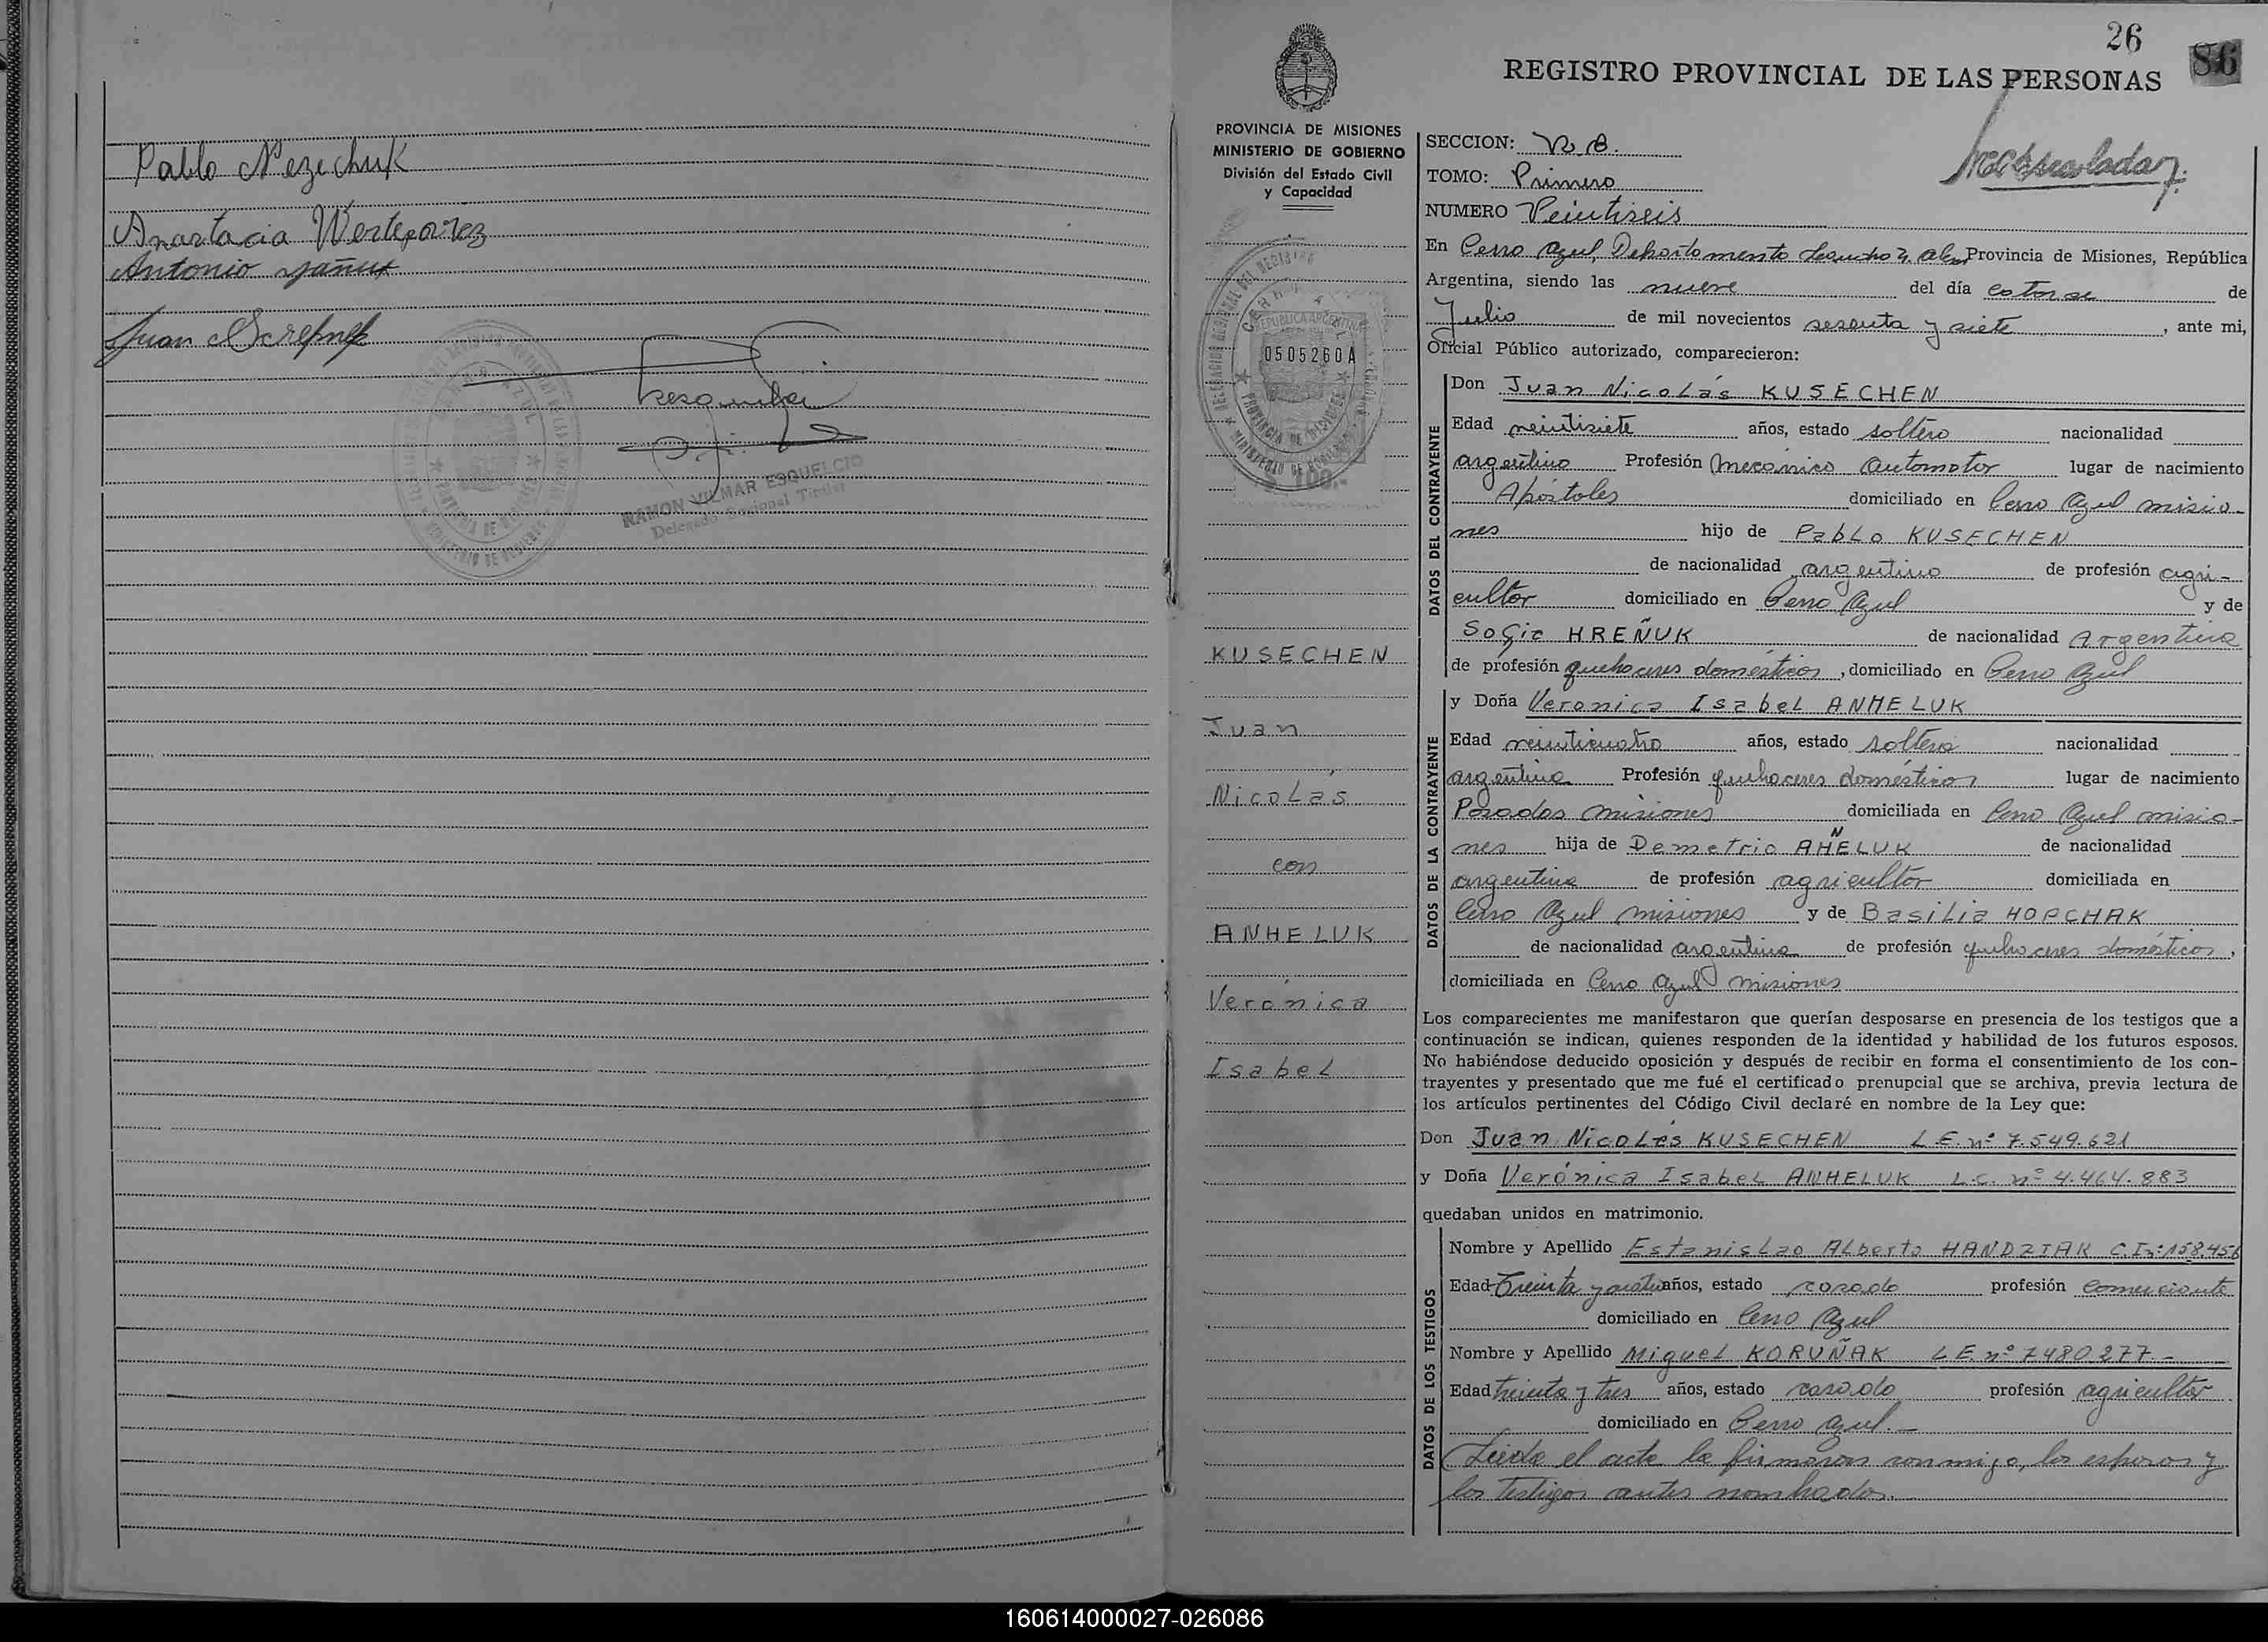 Pablo Nezechuk
Anastacia
Antonio
Juan
RAMON VILMAR ESQUELCIO
Delegado Seccional Titular
26
86
REGISTRO PROVINCIAL DE LAS PERSONAS
PROVINCIA DE MISIONES
MINISTERIO DE GOBIERNO
División del Estado Civil
y Capacidad
REPUBLICA ARGENTINA
0505260A
PROVINCIA DE MISIONES
$ 100.-
KUSECHEN
Juan
Nicolás
con
ANHELUK
Verónica
Isabel
SECCION:
TOMO: Primero
NUMERO Veintiseis
En Cerro Azul, Departamento Leandro N. Alem Provincia de Misiones, República
Argentina, siendo las nueve del día catorse de
Julio de mil novecientos sesenta y siete, ante mi,
Oficial Público autorizado, comparecieron:
DATOS DEL CONTRAYENTE
Don Juan Nicolás KUSECHEN
Edad veintisiete años, estado soltero nacionalidad
argentino Profesión Mecánico Automotor lugar de nacimiento
Apóstoles domiciliado en Cerro Azul misio-
nes hijo de Pablo KUSECHEN
de nacionalidad argentino de profesión agri-
cultor domiciliado en Cerro Azul y de
Sofia HREÑUK de nacionalidad Argentina
de profesión quehaceres domésticos, domiciliado en Cerro Azul
DATOS DE LA CONTRAYENTE
y Doña Veronica Isabel ANHELUK
Edad veinticuatro años, estado soltera nacionalidad
argentina Profesión quehaceres domésticos lugar de nacimiento
Posadas Misiones domiciliada en Cerro Azul misio-
nes hija de Demetrio ANHELUK de nacionalidad
argentina de profesión agricultor domiciliada en
Cerro Azul misiones y de Basilia HOPCHAK
de nacionalidad argentina de profesión quehaceres domésticos,
domiciliada en Cerro Azul misiones
Los comparecientes me manifestaron que querían desposarse en presencia de los testigos que a
continuación se indican, quienes responden de la identidad y habilidad de los futuros esposos.
No habiéndose deducido oposición y después de recibir en forma el consentimiento de los con-
trayentes y presentado que me fué el certificado prenupcial que se archiva, previa lectura de
los artículos pertinentes del Código Civil declaré en nombre de la Ley que:
Don Juan Nicolás KUSECHEN L.E. nº 7.549.621
y Doña Verónica Isabel ANHELUK L.C. nº 4.464.883
quedaban unidos en matrimonio.
DATOS DE LOS TESTIGOS
Nombre y Apellido Estanislao Alberto HANDZIAK C.I nº 158.456
Edad Treinta y años, estado casado profesión comerciante
domiciliado en Cerro Azul
Nombre y Apellido Miguel KORUÑAK L.E. nº 7480.277.-
Edad treinta y tres años, estado casado profesión agricultor
domiciliado en Cerro Azul.-
Leida el acta la firmaron conmigo, los esposos y
los testigos antes nombrados.
160614000027-026086